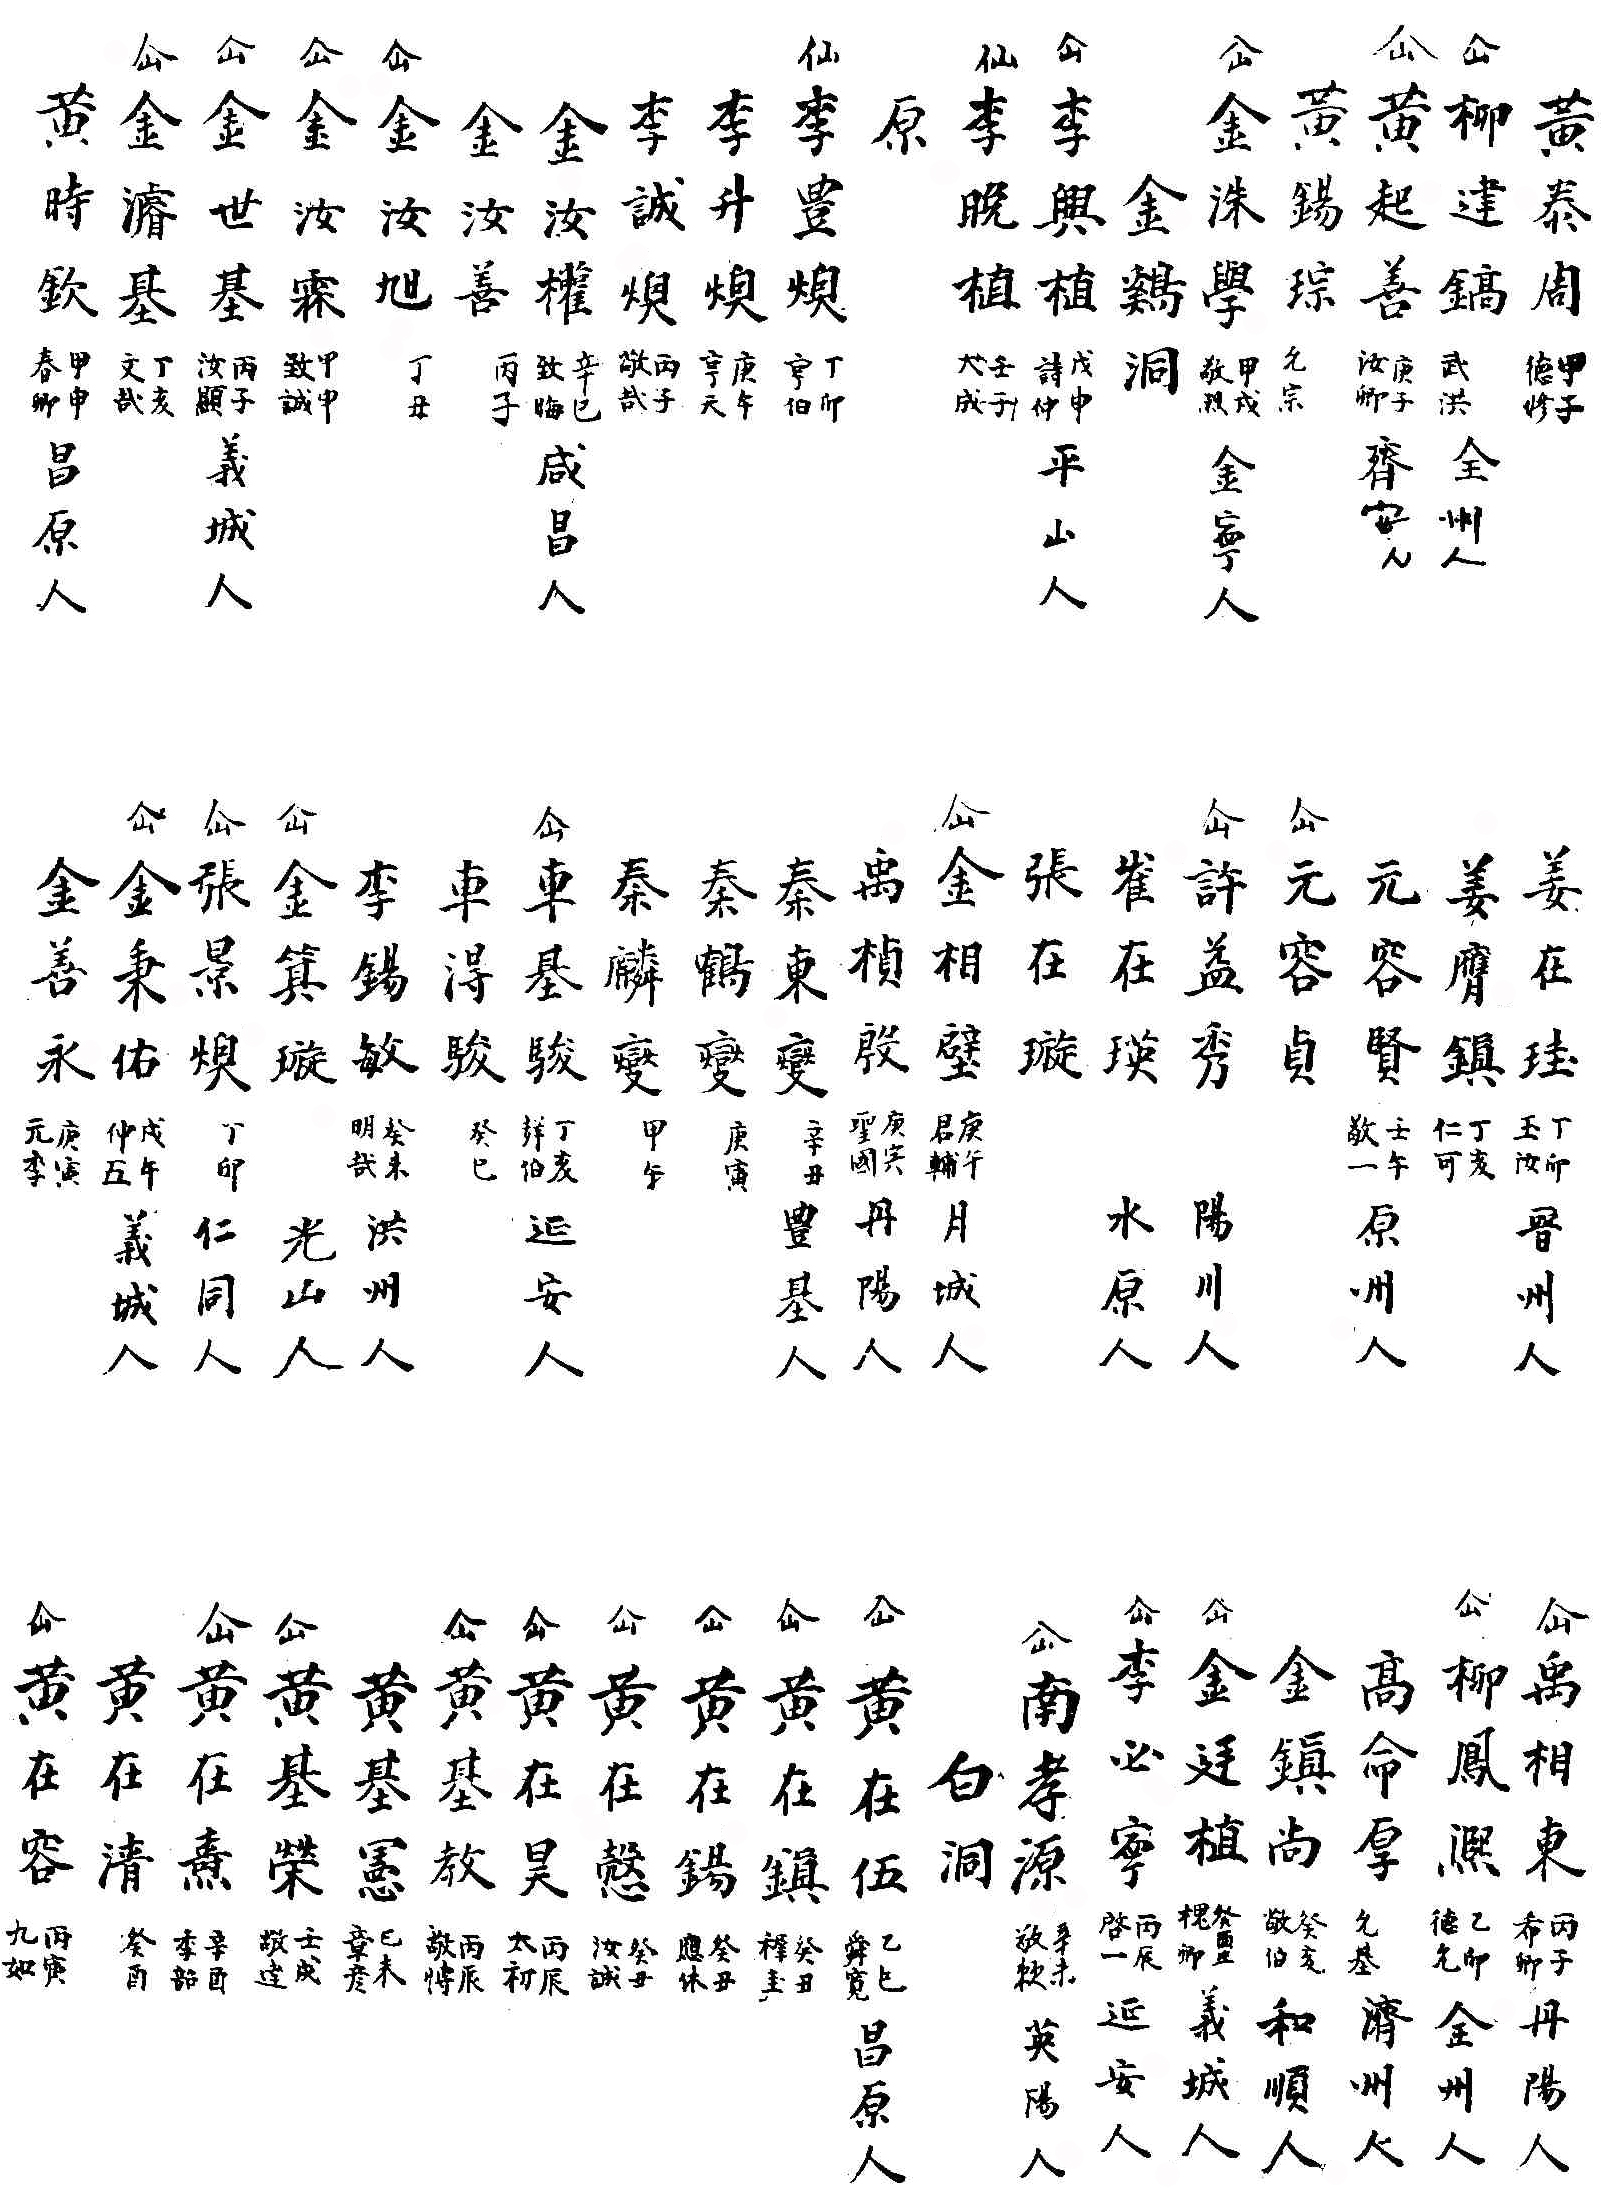 黃泰周 甲子 德修
仚 柳建鎬 武洪 全州人
仚 黃起善 庚子 汝卿 齊安人
黃錫琮 允宗
仚 金洙學 甲戌 敬煕 金寧人
金鷄洞
仚 李興植 戊申 詩仲 平山人
仙 李晩植 壬子 大成
原
仙 李豊燠 丁卯 亨伯
李升燠 庚午 亨天
李誠燠 丙子 敬哉
金汝權 辛巳 致晦 咸昌人
金汝善 丙子
仚 金汝旭 丁丑
仚 金汝霖 甲申 致誠
仚 金世基 丙子 汝顯 義城人
仚 金濬基 丁亥 文哉
黃時欽 甲申 春卿 昌原人
姜在珪 丁卯 玉汝 晉州人
姜膺鎭 丁亥 仁可
元容賢 壬午 敬一 原州人
仚 元容貞
仚 許益秀 陽川人
崔在瑛 水原人
張在璇
仚 金相璧 庚午 君輔 月城人
禹楨殷 庚寅 聖國 丹陽人
秦東燮 辛丑 豊基人
秦鶴燮 庚寅
秦麟燮 甲午
仚 車基駿 丁亥 祥伯 延安人
車淂駿 癸巳
李錫敏 癸未 明哉 洪州人
仚 金箕璇 光山人
仚 張景燠 丁卯 仁同人
仚 金秉佑 戊午 仲五 義城人
金善永 庚寅 元李
仚 禹相東 丙子 希卿 丹陽人
仚 柳鳳熈 乙卯 德允 全州人
高命厚 允基 濟州人
金鎭尚 癸亥 敬伯 和順人
仚 金廷植 癸酉 槐卿 義城人
仚 李必寧 丙辰 啓一 延安人
仚 南孝源 辛未 敬歎 英陽人
白洞
仚 黃在伍 乙巳 舜寬 昌原人
仚 黃在鎭 癸丑 稺圭
仚 黃在錫 癸丑 應休
仚 黃在慤 癸丑 汝誠
仚 黃在昊 丙辰 太初
仚 黃基敎 丙辰 敬博
黃基憲 己未 章彦
仚 黃基榮 壬戌 敬建
仚 黃在熹 辛酉 季韶
黃在清 癸酉
仚 黃在容 丙寅 九如